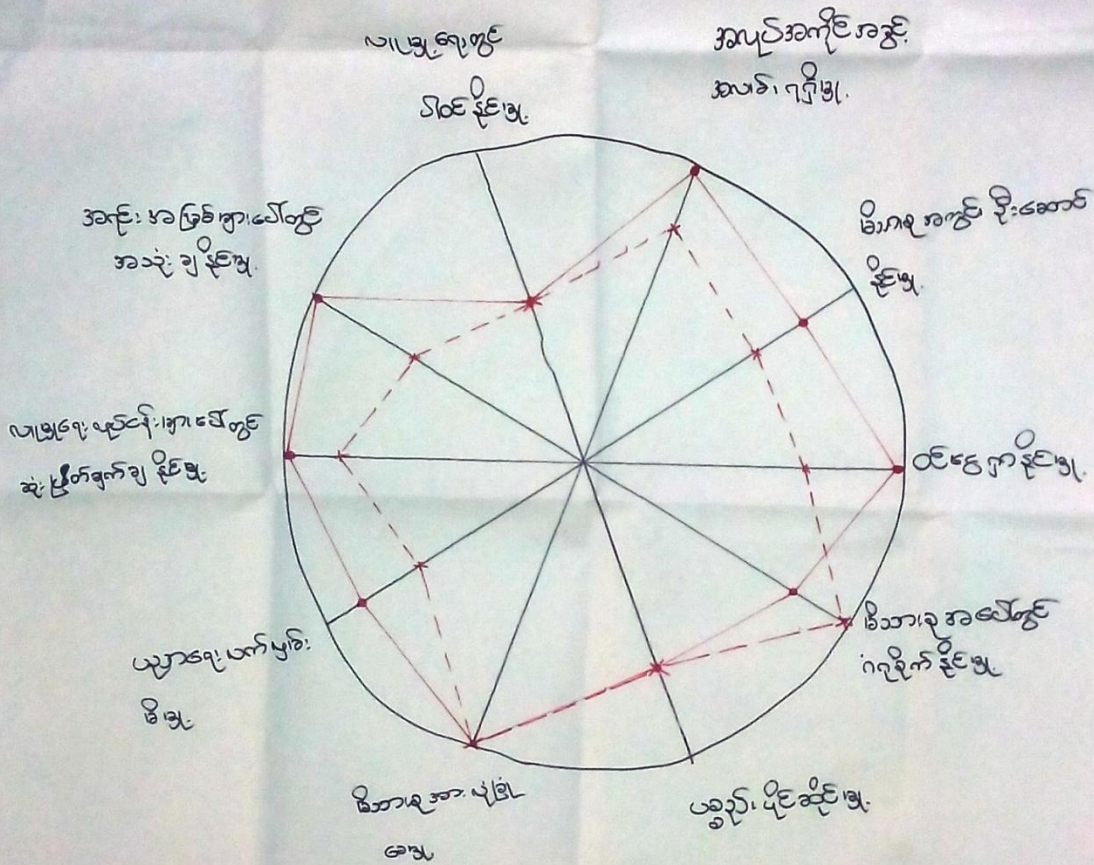 လူမှုရေးတွင်
ပါဝင်နိုင်မှု.
အလုပ်အကိုင်အခွင့်
အလမ်းရရှိမှု.
မိသားစုအတွင်းဦးဆောင်
နိုင်မှု.
ဝင်ငွေရှာနိုင်မှု.
မိသားစုအပေါ်တွင်
ဂရုစိုက်နိုင်မှု.
ပစ္စည်းပိုင်ဆိုင်မှု.
မိသားစုအားလုံခြုံ
စေမှု
ပညာရေးဖက်မှမ်း
မီမှု.
လူမှုရေးလုပ်ငန်းများပေါ်တွင်
ဆုံးဖြတ်ချက်ချနိုင်မှု.
အရင်းအမြစ်များပေါ်တွင်
အသုံးချနိုင်မှု.